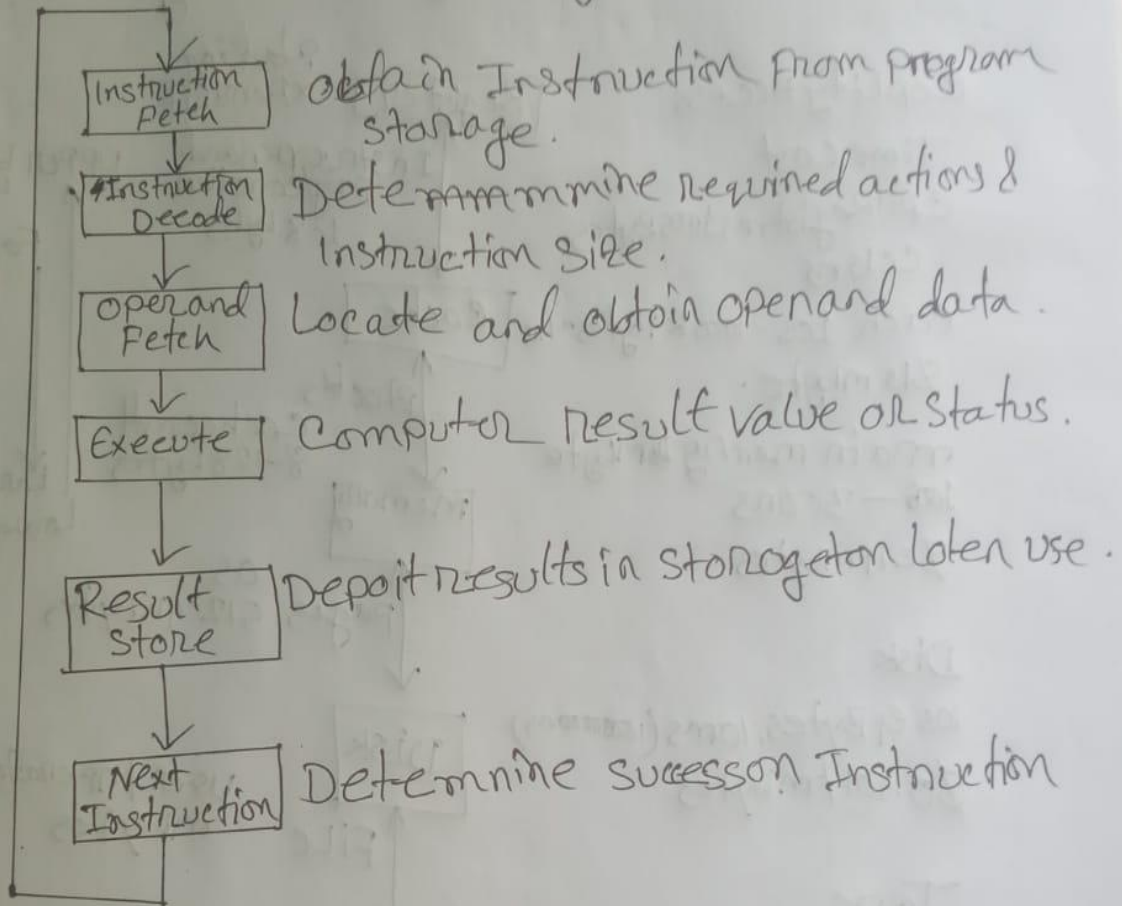 Instruction
Fetch
Obtain Instruction From program
storage.
Instruction
Decode
Determmmine required actions &
Instruction size.
Operand
Fetch
Locate and obtain operand data.
Execute
Computer result value or status.
Result
Store
Depoit results in storage for later use.
Next
Instruction
Determine successor Instruction